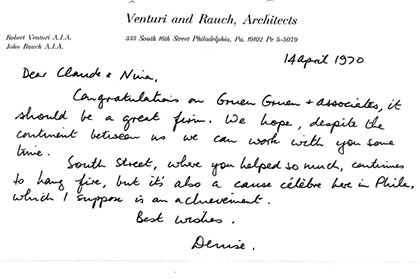 Venturi and Rauch, Architects
Robert Venturi A.I.A.
John Rauch A.I.A.
333 South 16th Street Philadelphia, Pa. 19102 Pe 5-5079
14 April 1970
Dear Claude & Nina,
Congratulations on Gruen Gruen + associates, it
should be a great firm. We hope, despite the
continent between us we can work with you some
time.
South Street, where you helped so much, continues
to hang fire, but it's also a cause célèbre here in Phila,
which I suppose is an achievement.
Best wishes.
Denise.